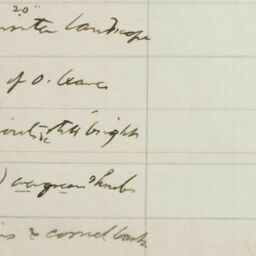 20"
winter landscape
of O. leaves
still bright
evergreen shrubs
& cornel bark